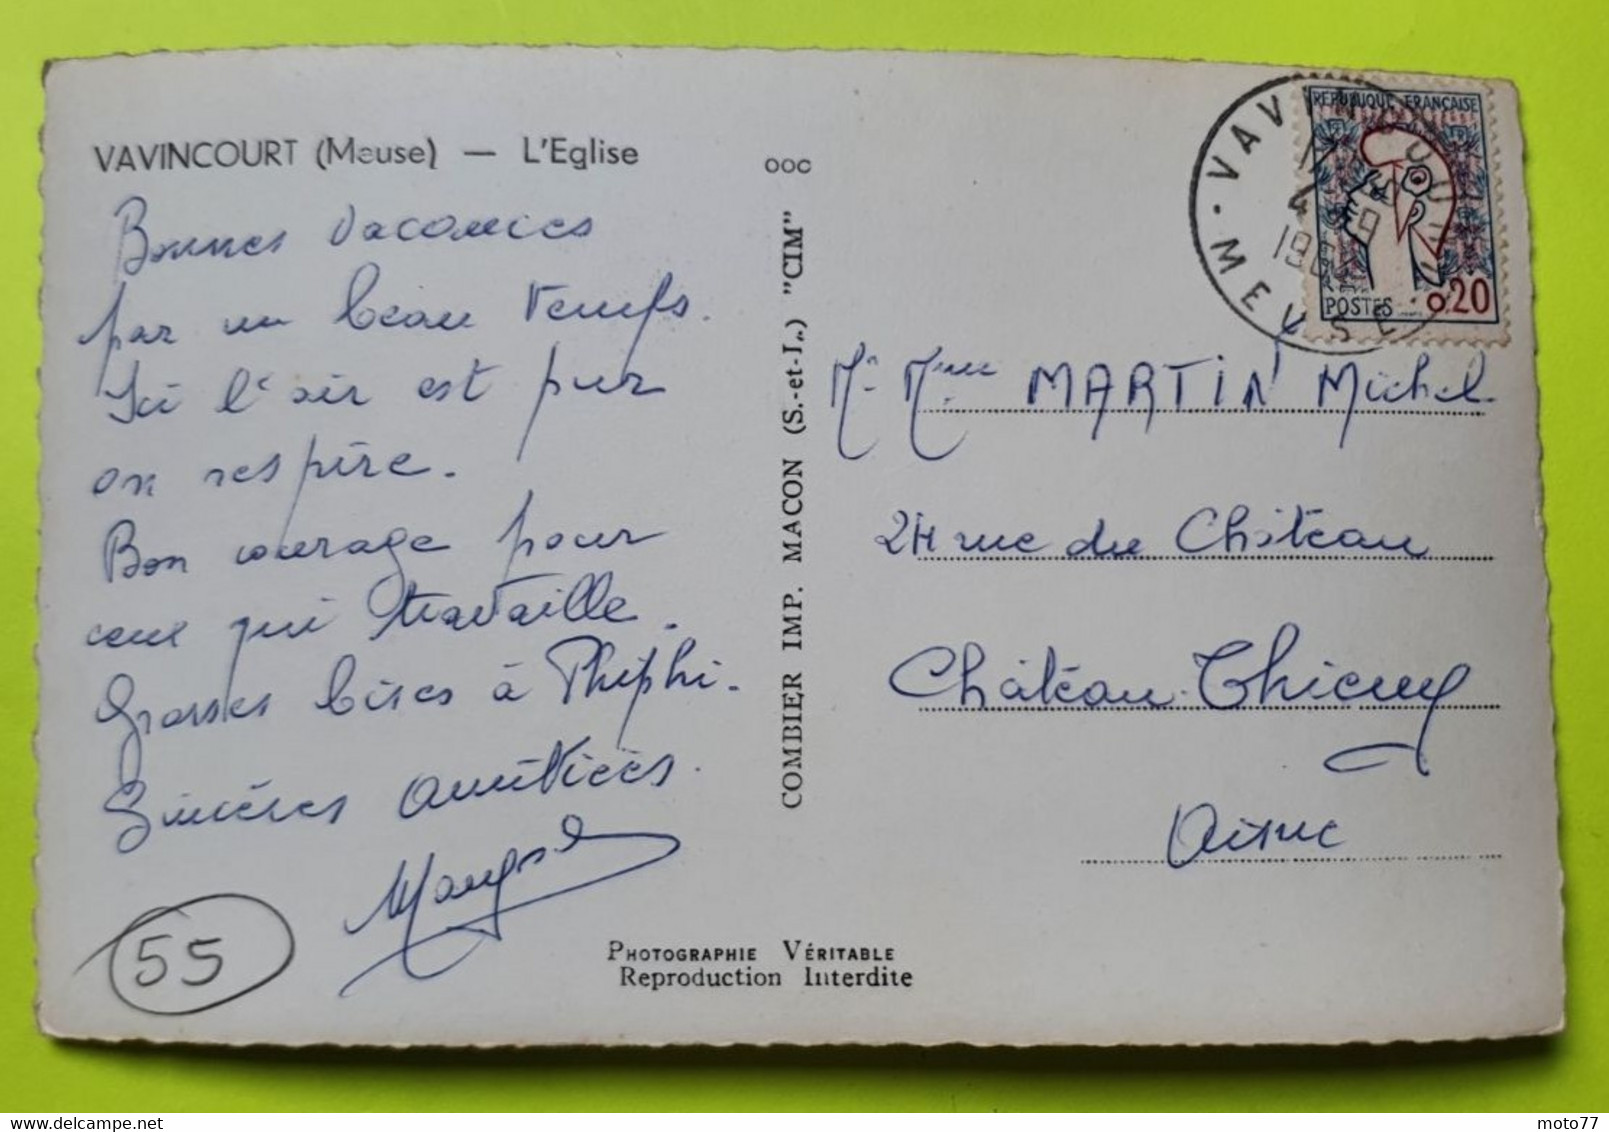 VAVINCOURT (Meuse) — L'Eglise
OOC
Bonnes vacances
par un beau temps.
Ici l'air est pur
on respire.
Bon courage pour
ceux qui travaille.
Grosses bises à Phiphi.
Sincères amitiées.
55
COMBIER IMP. MACON (S.-et-L.) "CIM"
PHOTOGRAPHIE VÉRITABLE
Reproduction Interdite
VAVINCOURT
MEUSE
REPUBLIQUE FRANÇAISE
POSTES 0,20
Mr Mme MARTIN Michel
24 rue du Château
Château-Thierry
Aisne
moto77